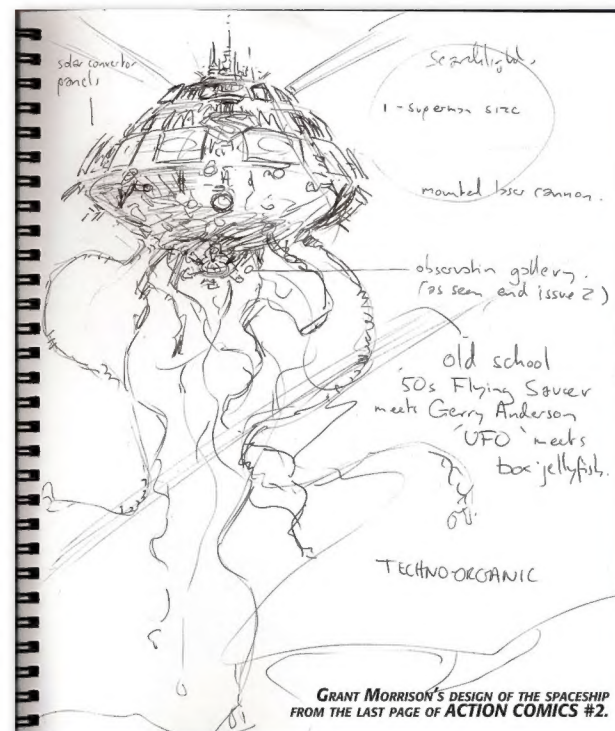 solar convertor
panels
Searchlights.
1 - superman size
mounted laser cannon.
observation gallery.
(as seen end issue 2)
old school
'50s Flying Saucer
meets Gerry Anderson
'UFO' meets
box jellyfish.
TECHNO-ORGANIC
GRANT MORRISON'S DESIGN OF THE SPACESHIP
FROM THE LAST PAGE OF ACTION COMICS #2.